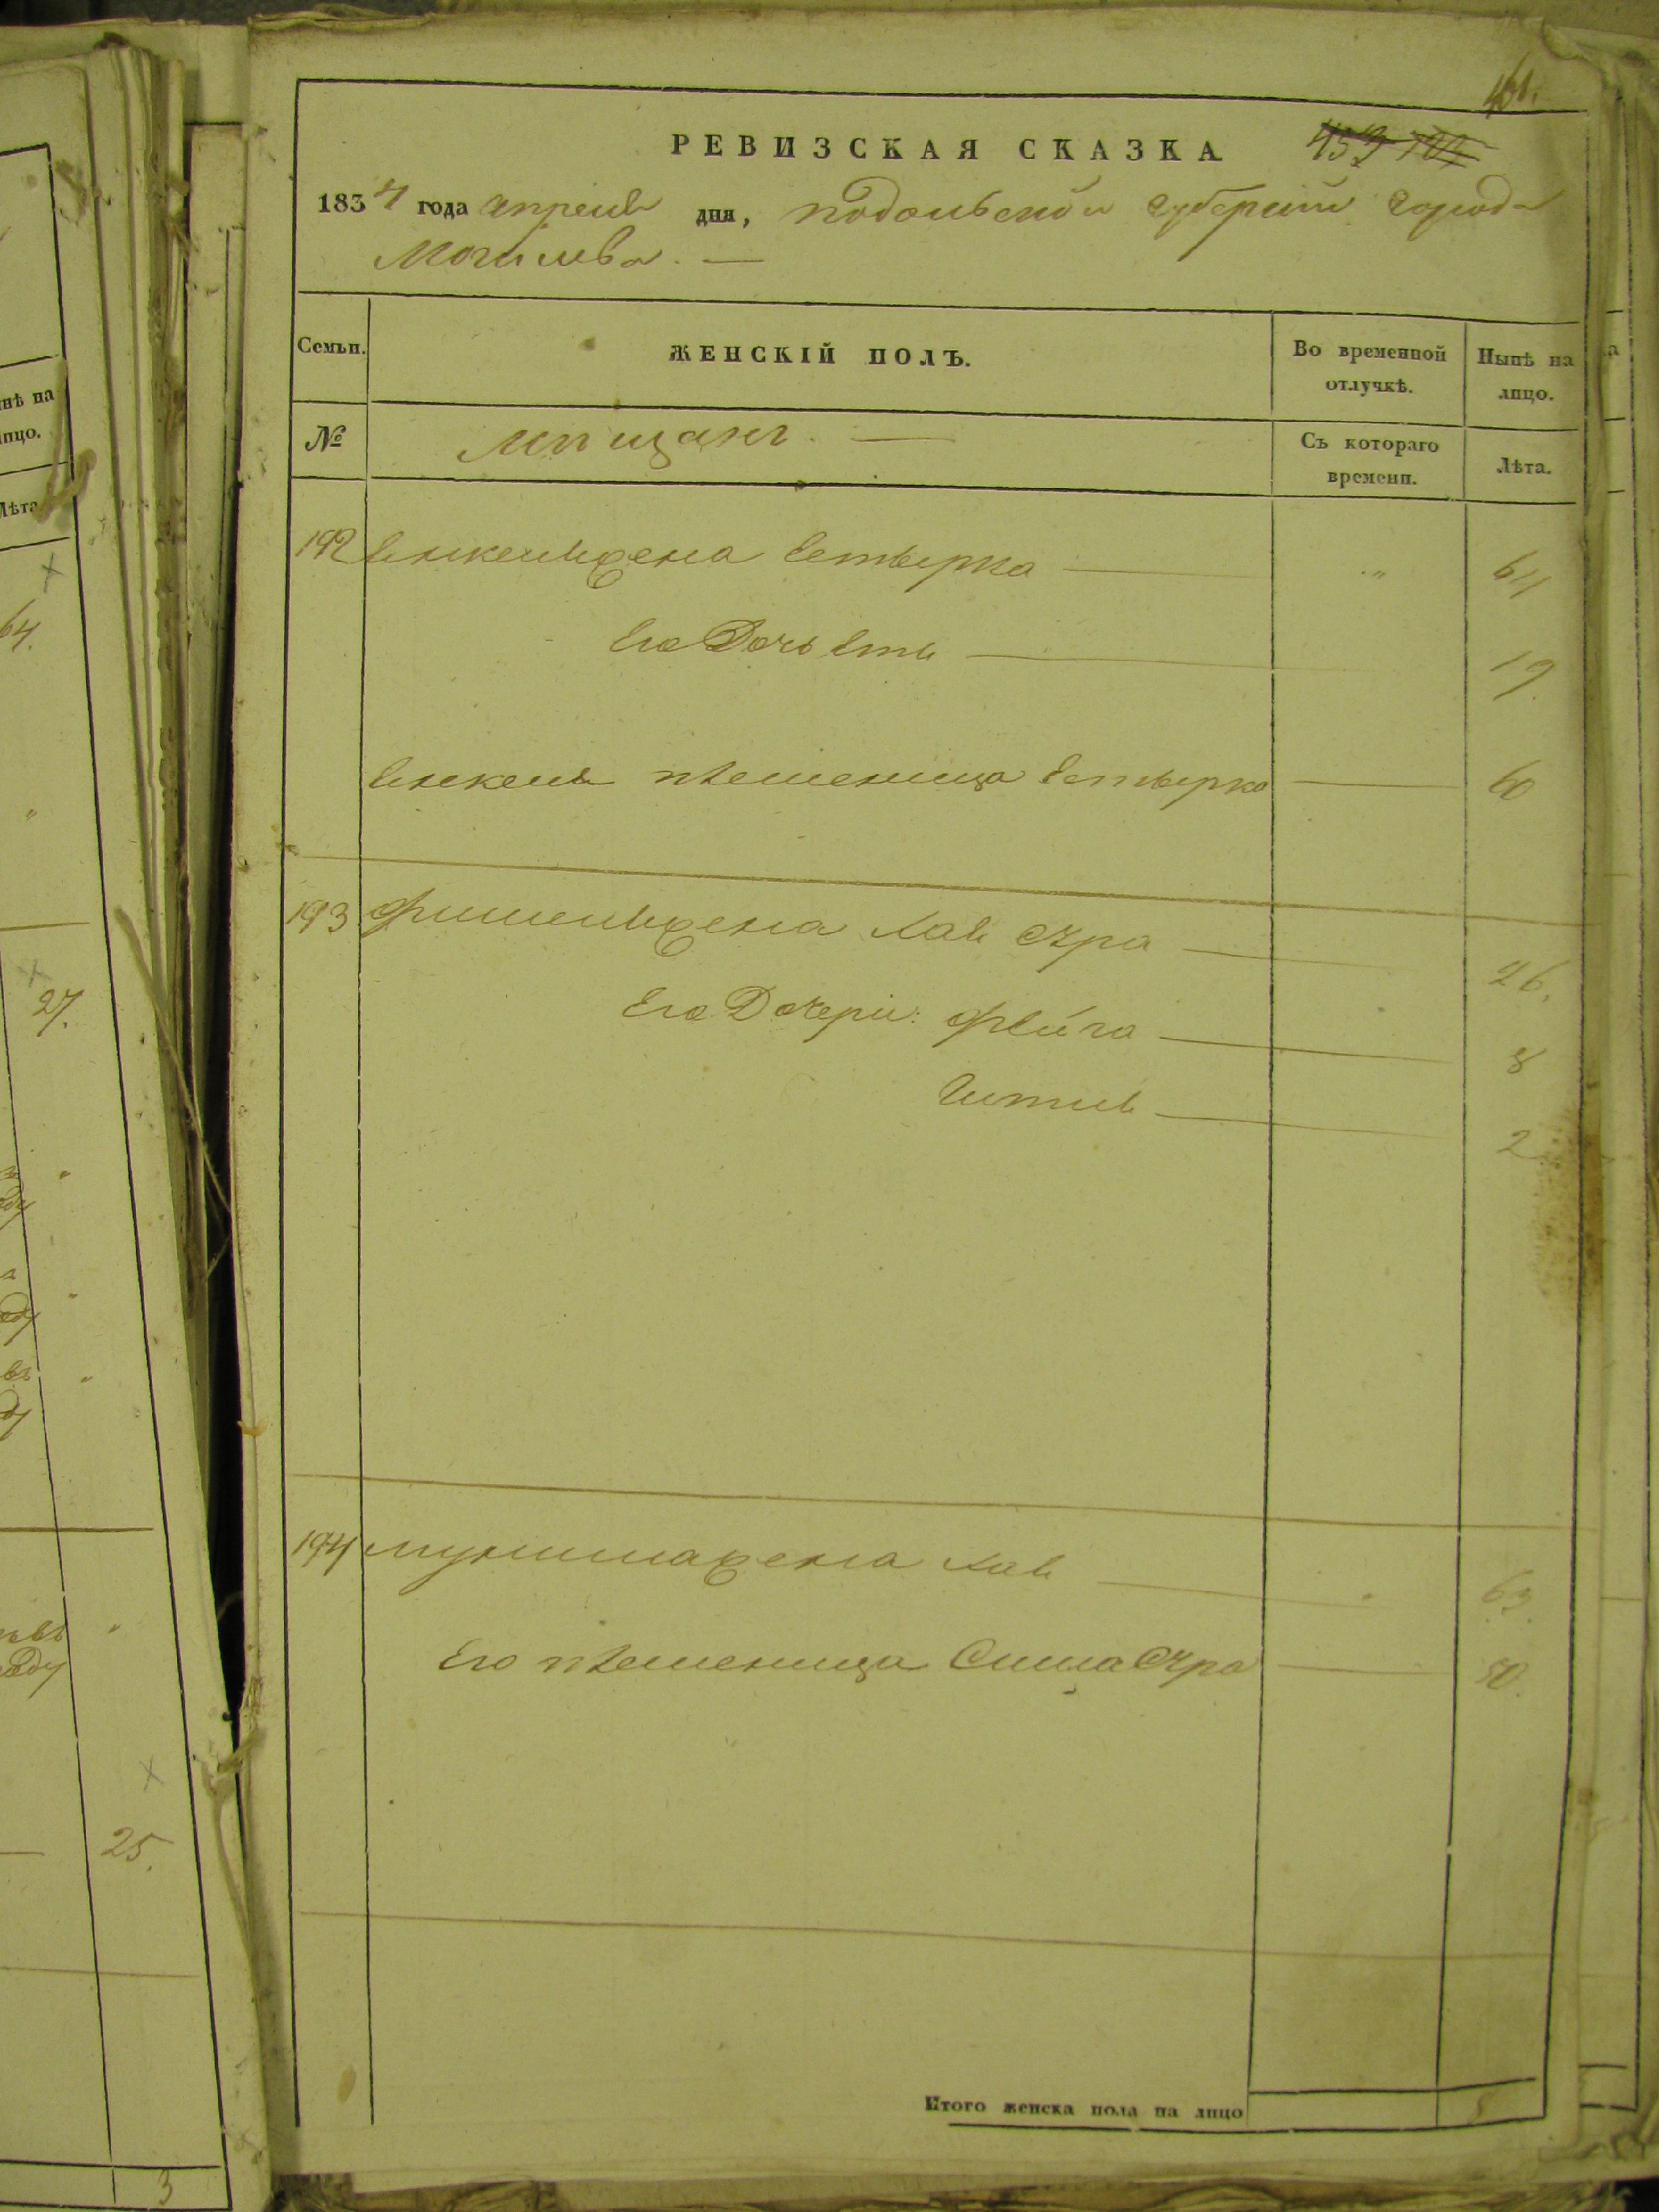 461.
РЕВИЗСКАЯ СКАЗКА
1834 года апреля дня, Подольской Губернии Города
Могилева. —
Семьи.
ЖЕНСКІЙ ПОЛЪ.
Во временной отлучкѣ.
Нынѣ на лицо.
№
Мѣщане. —
Съ котораго времени.
Лѣта.
192 жена Естырка — „ 64
Его Дочь Эти — 19.
племеница Естырка — 60
193 жена Хая Сура — 26.
Его Дочери: Фейга — 8
— 2
194 жена Хая — 63.
Его племеница Сима Сура — 50.
Итого женска пола на лицо
нѣ на
лицо.
Лѣта
64.
27.
25.
3